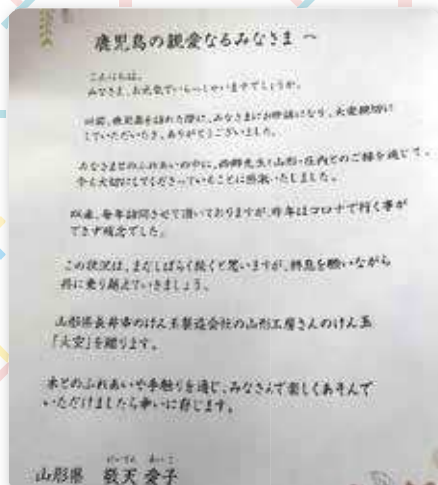 鹿児島の親愛なるみなさまへ
こんにちは。
みなさま、お元気でいらっしゃいますでしょうか。
以前、鹿児島を訪れた際に、みなさまにお世話になり、大変親切に
していただいたき、ありがとうございました。
みなさまとのふれあいの中に、西郷先生と山形・庄内とのご縁を通じて、
今も大切にしてくださっていることに感激いたしました。
以来、毎年訪問させて頂いておりますが、昨年はコロナで行く事が
できず残念でした。
この状況は、まだしばらく続くと思いますが、終息を願いながら
共に乗り越えていきましょう。
山形県長井市のけん玉製造会社の山形工房さんのけん玉
「大空」を贈ります。
木とのふれあいや手触りを通じ、みなさんで楽しくあそんで
いただけましたら幸いに存じます。
けいてん あいこ
山形県 敬天 愛子